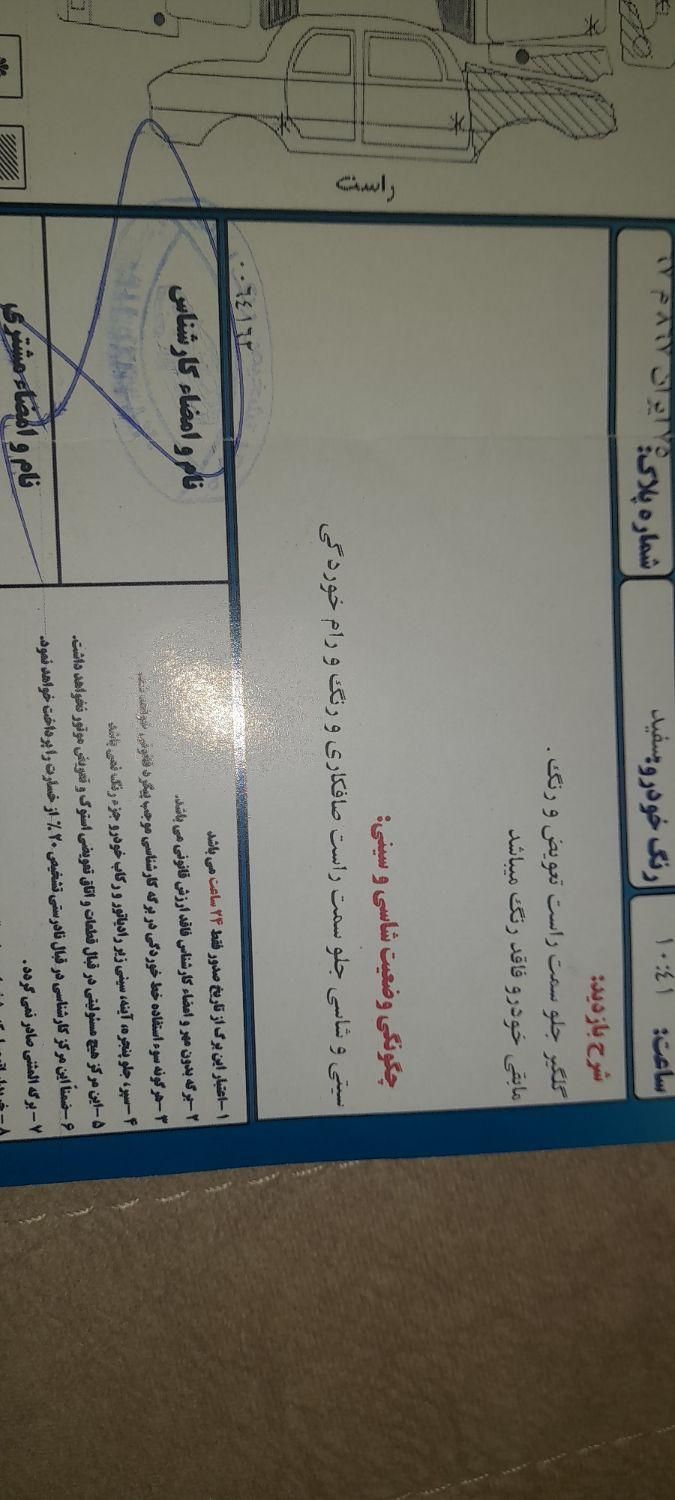 ساعت: ۱۰:٤۱
رنگ خودرو: سفید
شماره پلاک:
شرح بازدید:
گلگیر جلو سمت راست تعویض و رنگ .
مابقی خودرو فاقد رنگ میباشد
چگونگی وضعیت شاسی و سینی:
سینی و شاسی جلو سمت راست صافکاری و رنگ و رام خوردگی
راست
۰۰٦٤۱٦۲
نام و امضاء کارشناس
نام و امضاء مشتری
۱-اعتبار این برگ از تاریخ صدور فقط ۲۴ ساعت می باشد
۲-برگه بدون مهر و امضاء کارشناس فاقد ارزش قانونی می باشد.
۳-هرگونه سوء استفاده خط خوردگی در برگه کارشناسی موجب پیگرد قانونی خواهد شد.
۴-سپر، جلو پنجره، آینه، سینی زیر رادیاتور و رکاب خودرو جزء رنگ نمی باشد
۵-این مرکز هیچ مسئولیتی در قبال قطعات و اتاق تعویضی استوک و تعویض موتور نخواهد داشت.
۶-ضمناً این مرکز کارشناسی در قبال نادرستی تشخیص ۲۰٪ از خسارت را پرداخت خواهد نمود.
۷-برگه المثنی صادر نمی گردد.